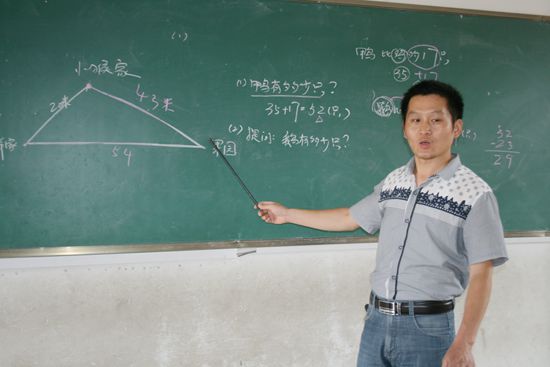 (1)
小猴家
43米
54
果园
(1) 鸭有多少只?
35+17=52(只)
(2) 提问: 鹅有多少只?
鸭比鸡多17只
35+17
52
-23
29